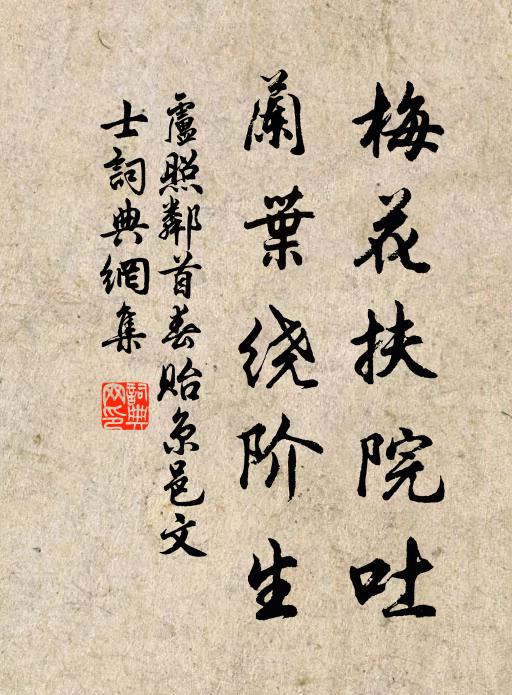 梅花扶院吐
蘭葉绕阶生
盧照鄰首春貽京邑文
士詞典網集
詞典
网印